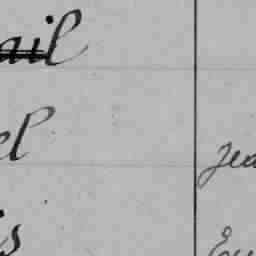 ail
el
Jea
is
Eu